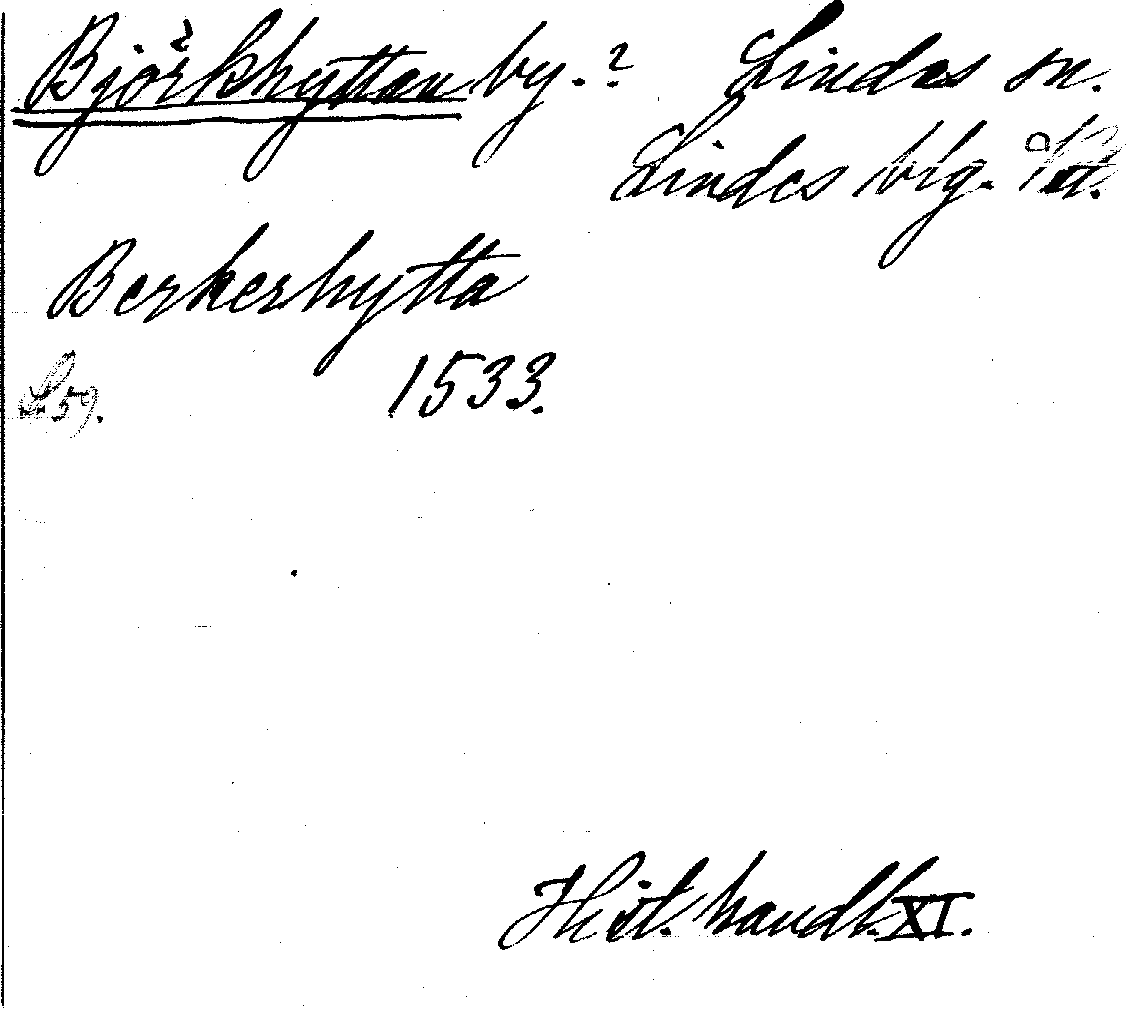 Björkhyttan by.? Lindes sn.
Lindes blg.
Berkerhytta
1533.
Hist. handl. XI.